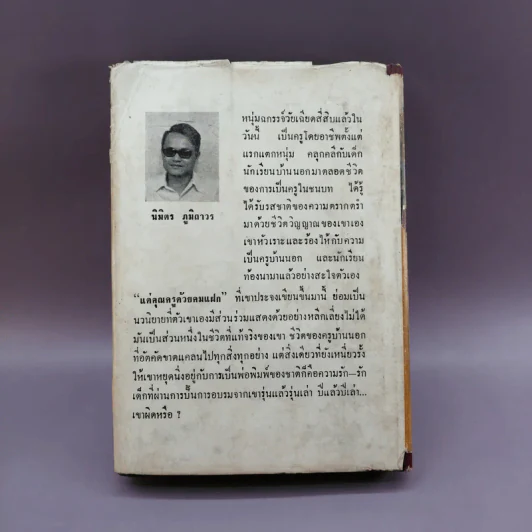 หนุ่มฉกรรจ์วัยเฉียดสี่สิบแล้วใน
วันนี้ เป็นครูโดยอาชีพตั้งแต่
แรกแตกหนุ่ม คลุกคลีกับเด็ก
นักเรียนบ้านนอกมาตลอดชีวิต
ของการเป็นครูในชนบท ได้รู้
ได้รับรสชาติของความตรากตรำ
มาด้วยชีวิตวิญญาณของเขาเอง
เขาหัวเราะและร้องไห้กับความ
เป็นครูบ้านนอก และนักเรียน
ท้องนามาแล้วอย่างสะใจตัวเอง
นิมิตร ภูมิถาวร
"แด่คุณครูด้วยคมแฝก" ที่เขาประจงเขียนขึ้นมานี้ ย่อมเป็น
นวนิยายที่ตัวเขาเองมีส่วนร่วมแสดงด้วยอย่างหลีกเลี่ยงไม่ได้
มันเป็นส่วนหนึ่งในชีวิตที่แท้จริงของเขา ชีวิตของครูบ้านนอก
ที่อัตคัดขาดแคลนไปทุกสิ่งทุกอย่าง แต่สิ่งเดียวที่ยังเหนี่ยวรั้ง
ให้เขาหยุดนิ่งอยู่กับการเป็นพ่อพิมพ์ของชาติก็คือความรัก—รัก
เด็กที่ผ่านการปั้นการอบรมจากเขารุ่นแล้วรุ่นเล่า ปีแล้วปีเล่า...
เขาผิดหรือ ?